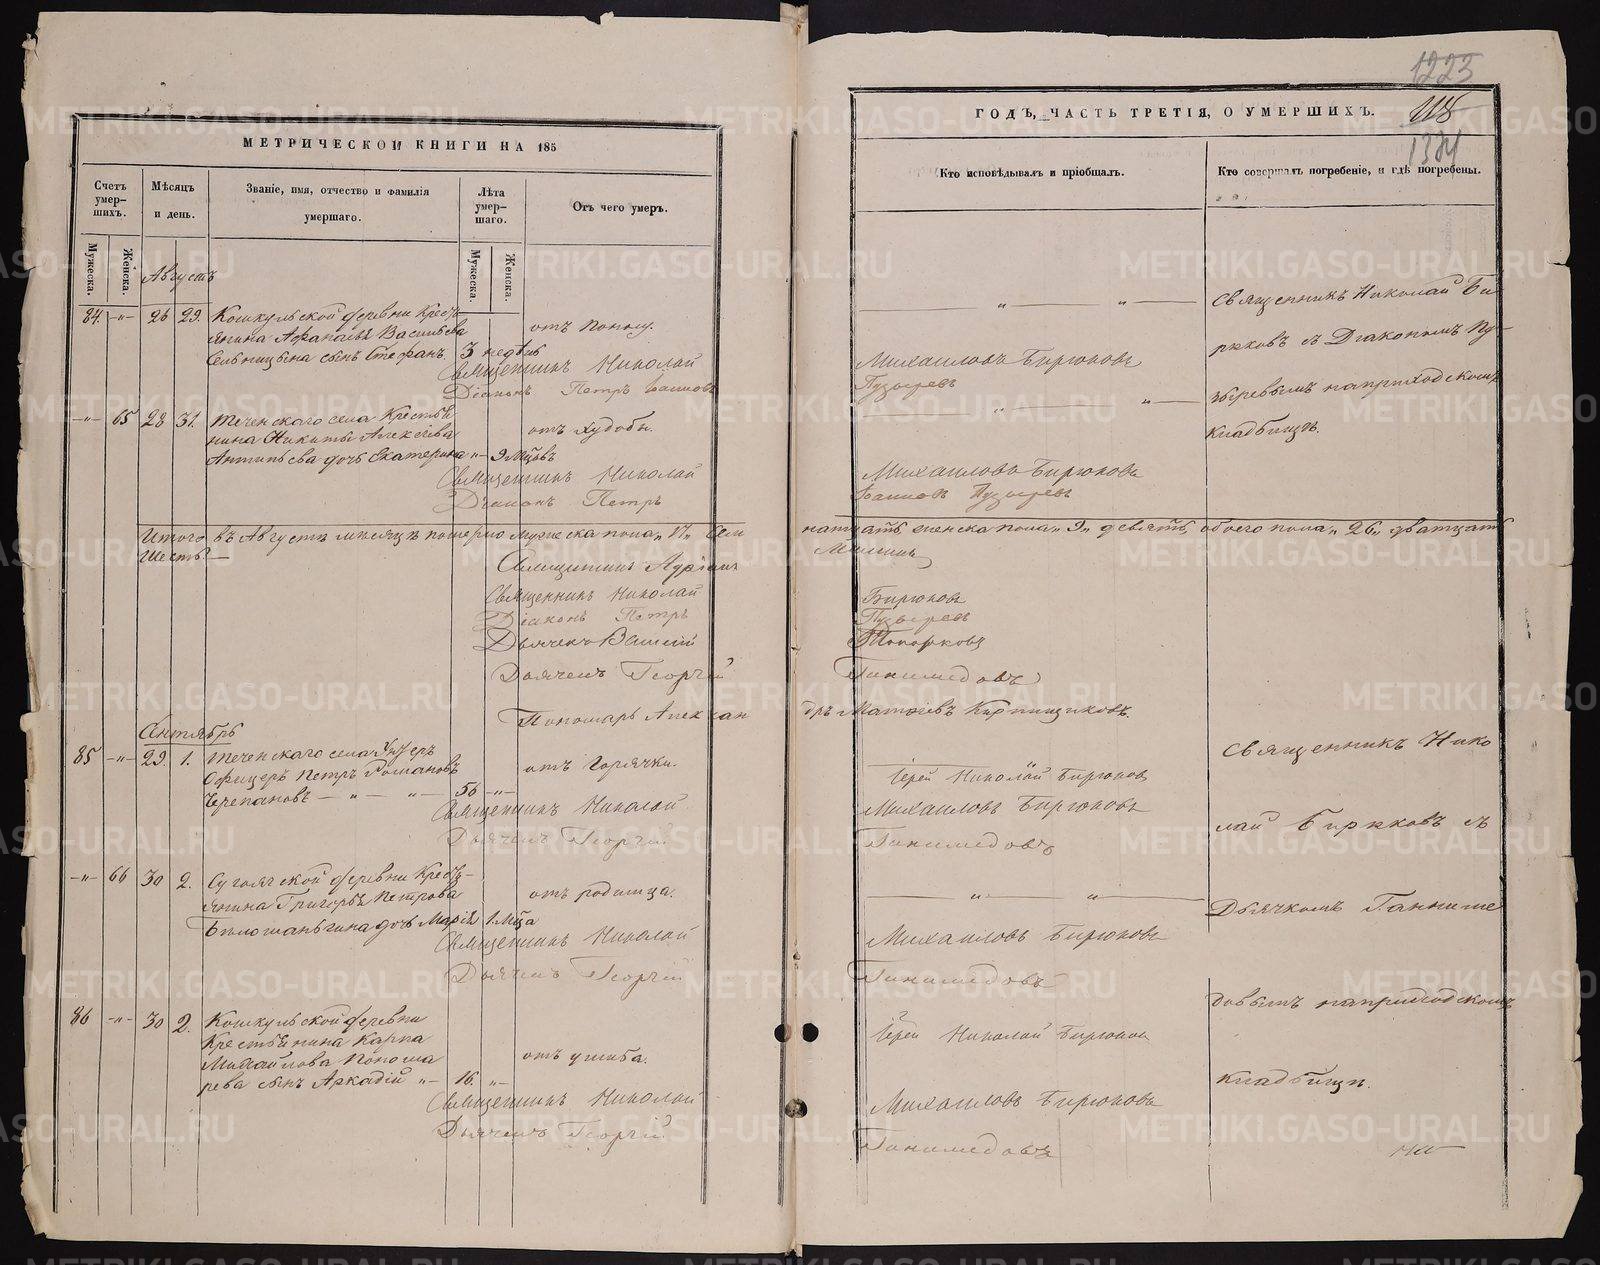 1223
118
1384
МЕТРИЧЕСКОЙ КНИГИ НА 185
ГОДЪ, ЧАСТЬ ТРЕТІЯ, О УМЕРШИХЪ.
Счетъ умершихъ.
Мужеска.
Женска.
Мѣсяцъ и день.
Званіе, имя, отчество и фамилія умершаго.
Лѣта умершаго.
Мужеска.
Женска.
Отъ чего умеръ.
Кто исповѣдывалъ и пріобщалъ.
Кто совершалъ погребеніе, и гдѣ погребены.
Августъ
84. -"- 26 29. Кошкульской деревни Кресть
янина Афанасья Васильева
Сельницына сынъ Стефанъ. 3 недѣль
отъ поносу.
Священникъ Николай Михаиловъ Бирюковъ
Діаконъ Петръ Іоанновъ Пузыревъ
Священникъ Николай Би
рюковъ съ Діакономъ Пу-
зыревымъ на приходскомъ
кладбищѣ.
-"- 65 28 31. Теченскаго села Крестья
нина Никиты Алексѣева
Антипьева дочь Екатерина -"- 9 Мцовъ
отъ худобы.
Священникъ Николай Михаиловъ Бирюковъ
Діаконъ Петръ Іоанновъ Пузыревъ
Итого въ Августѣ мѣсяцѣ померло мужеска пола "17" семнатцать, женска пола "9" девять, обоего пола "26" дватцать
шесть. —
Священникъ Николай Бирюковъ
Діаконъ Петръ Пузыревъ
Дьячекъ Василій Топорковъ
Дьячекъ Георгій Ганимедовъ
Пономарь Александръ Матѳіевъ Кирпищиковъ.
Сентябрь
85 -"- 29. 1. Теченскаго села Унтеръ
Офицеръ Петръ Романовъ
Черепановъ — " — " — 56 -"-
отъ горячки.
Іерей Николай Бирюковъ
Священникъ Николай Михаиловъ Бирюковъ
Дьячекъ Георгій Ганимедовъ
Священникъ Нико
лай Бирюковъ съ
Дьячкомъ Ганниме
довымъ на приходскомъ
кладбищѣ.
-"- 66 30 2. Сугоякской деревни Кресть-
янина Григорья Петрова
Бѣлошаньгина дочь Марія 1. Мца
отъ родимца.
Священникъ Николай Михаиловъ Бирюковъ
Дьячекъ Георгій Ганимедовъ
86 -"- 30 2. Кошкульской деревни
Крестьянина Карпа
Михайлова Понома
рева сынъ Аркадій "- 16. -"-
отъ ушиба.
Іерей Николай Бирюковъ
Священникъ Николай Михаиловъ Бирюковъ
Дьячекъ Георгій Ганимедовъ
METRIKI.GASO-URAL.RU